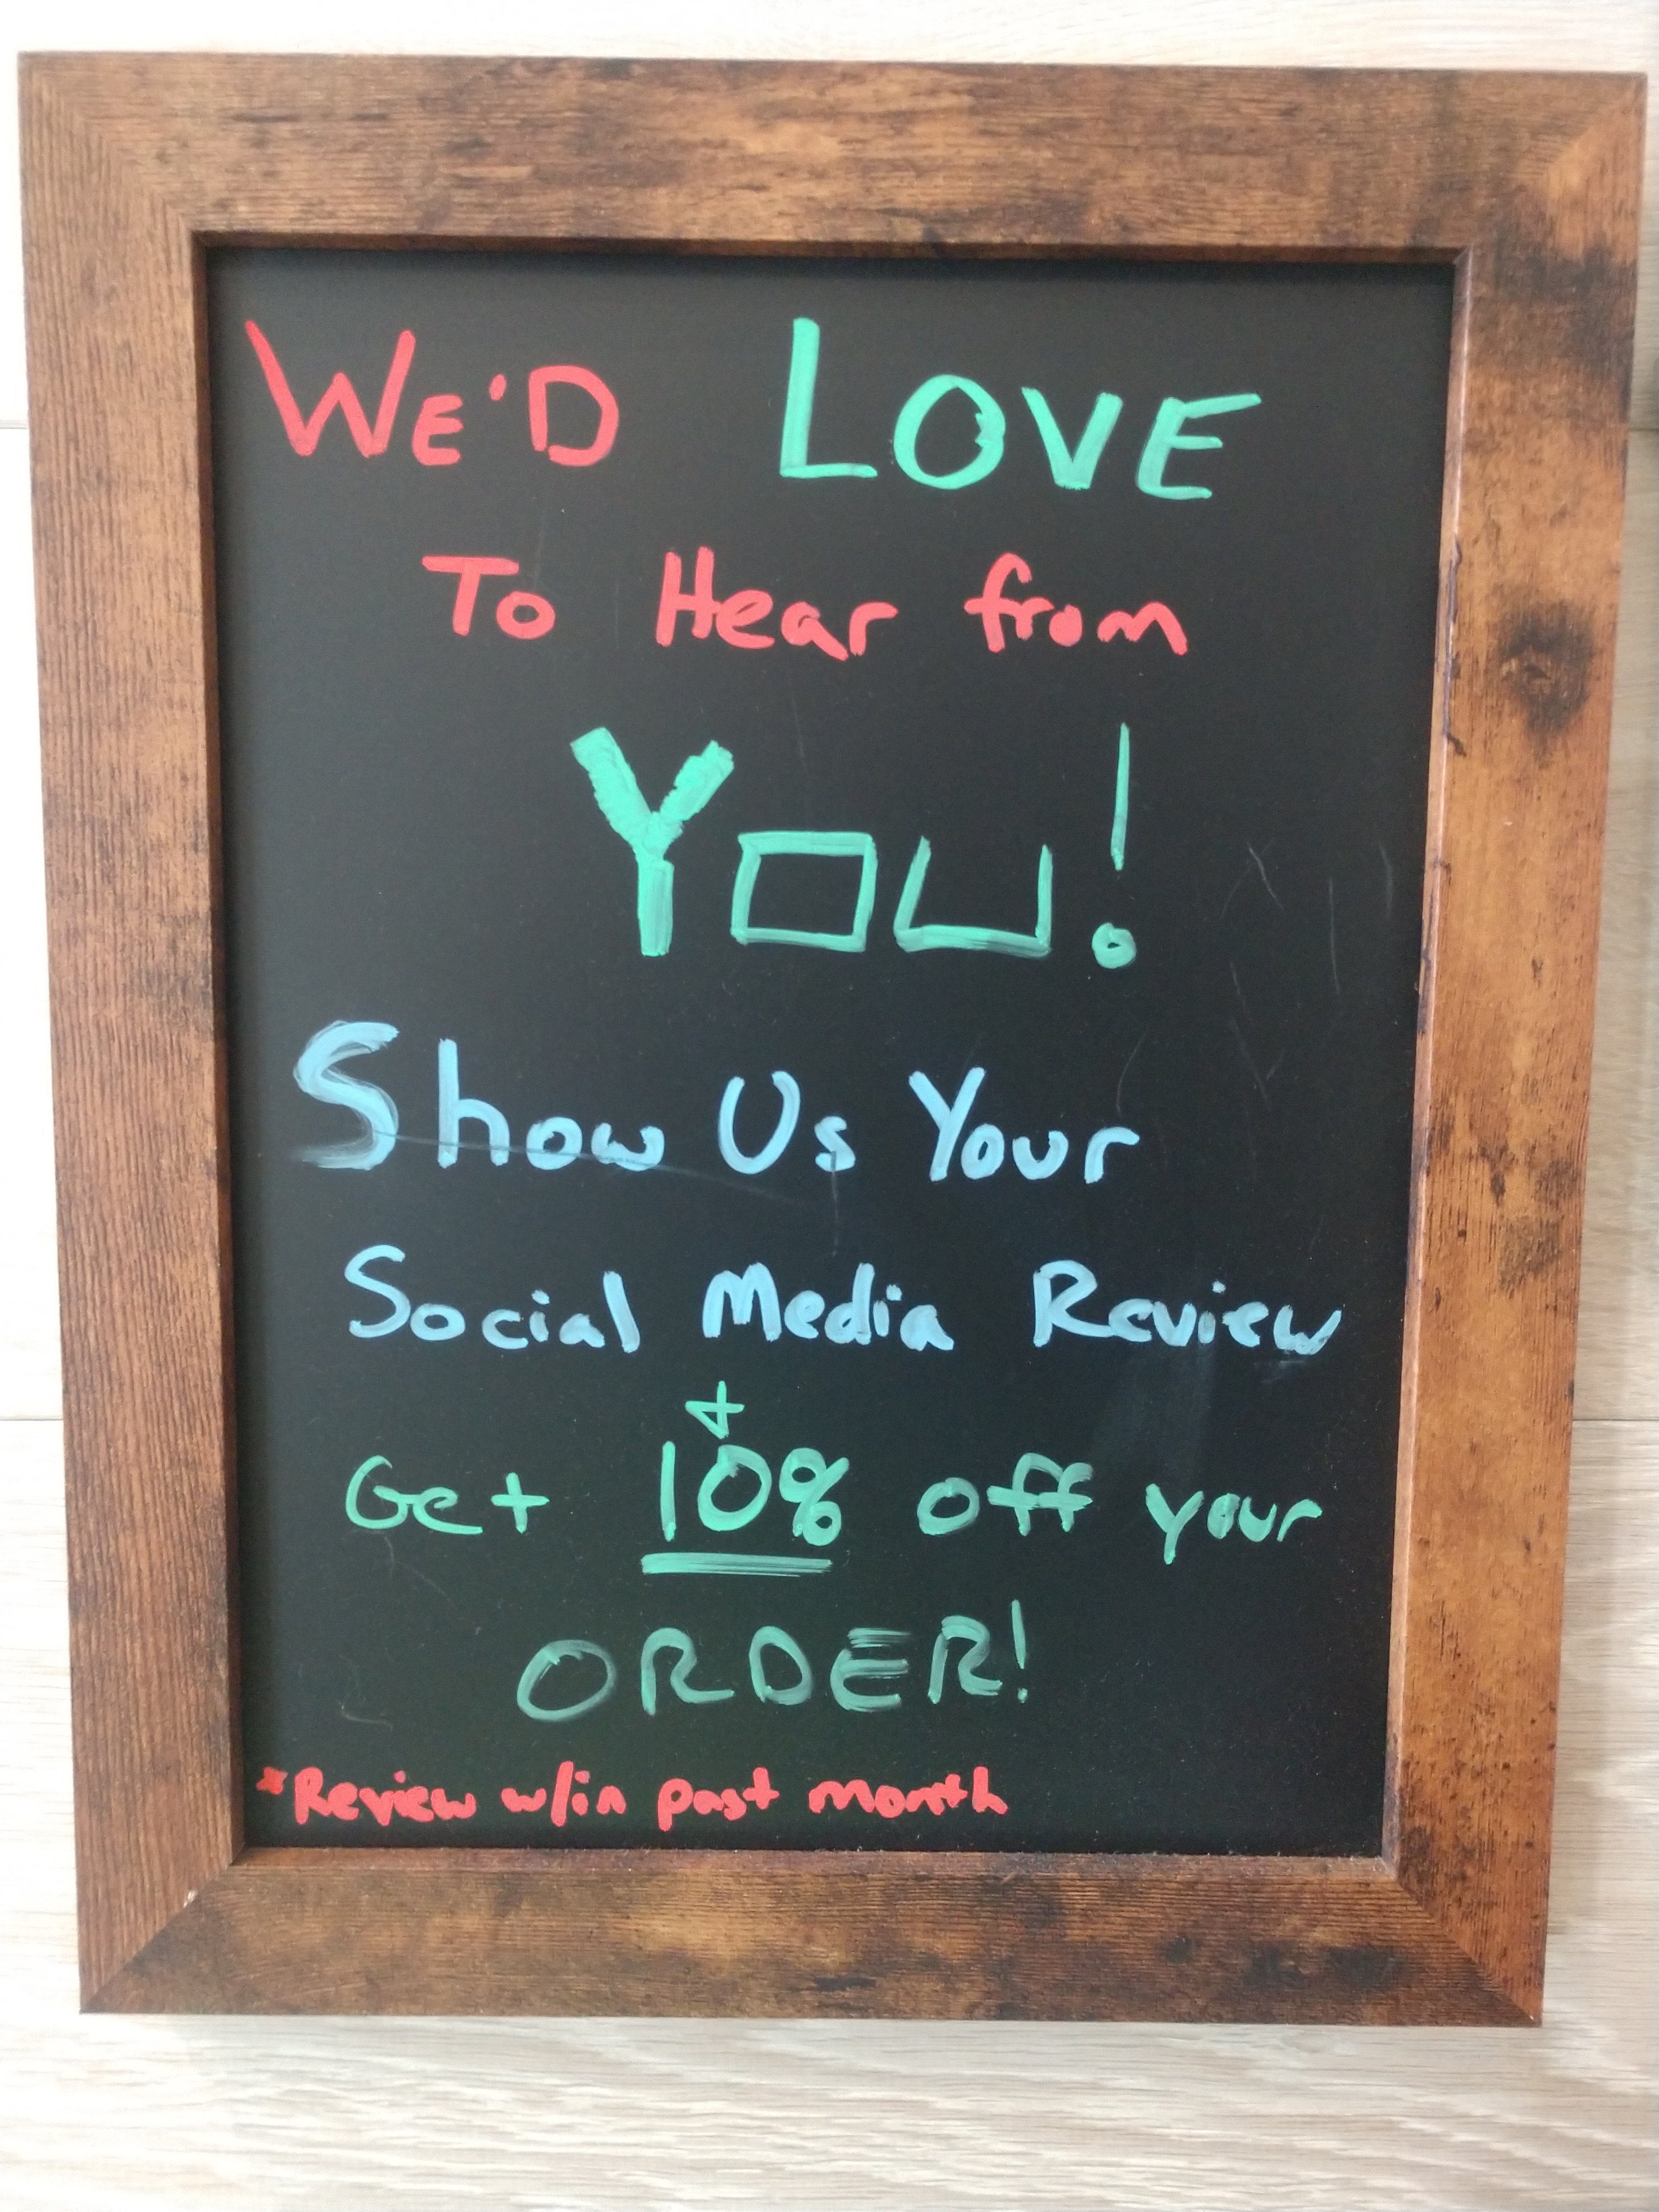 WE'D LOVE
To Hear from
YOU!
Show Us Your
Social Media Review
+
Get 10% off your
ORDER!
*Review w/in past month